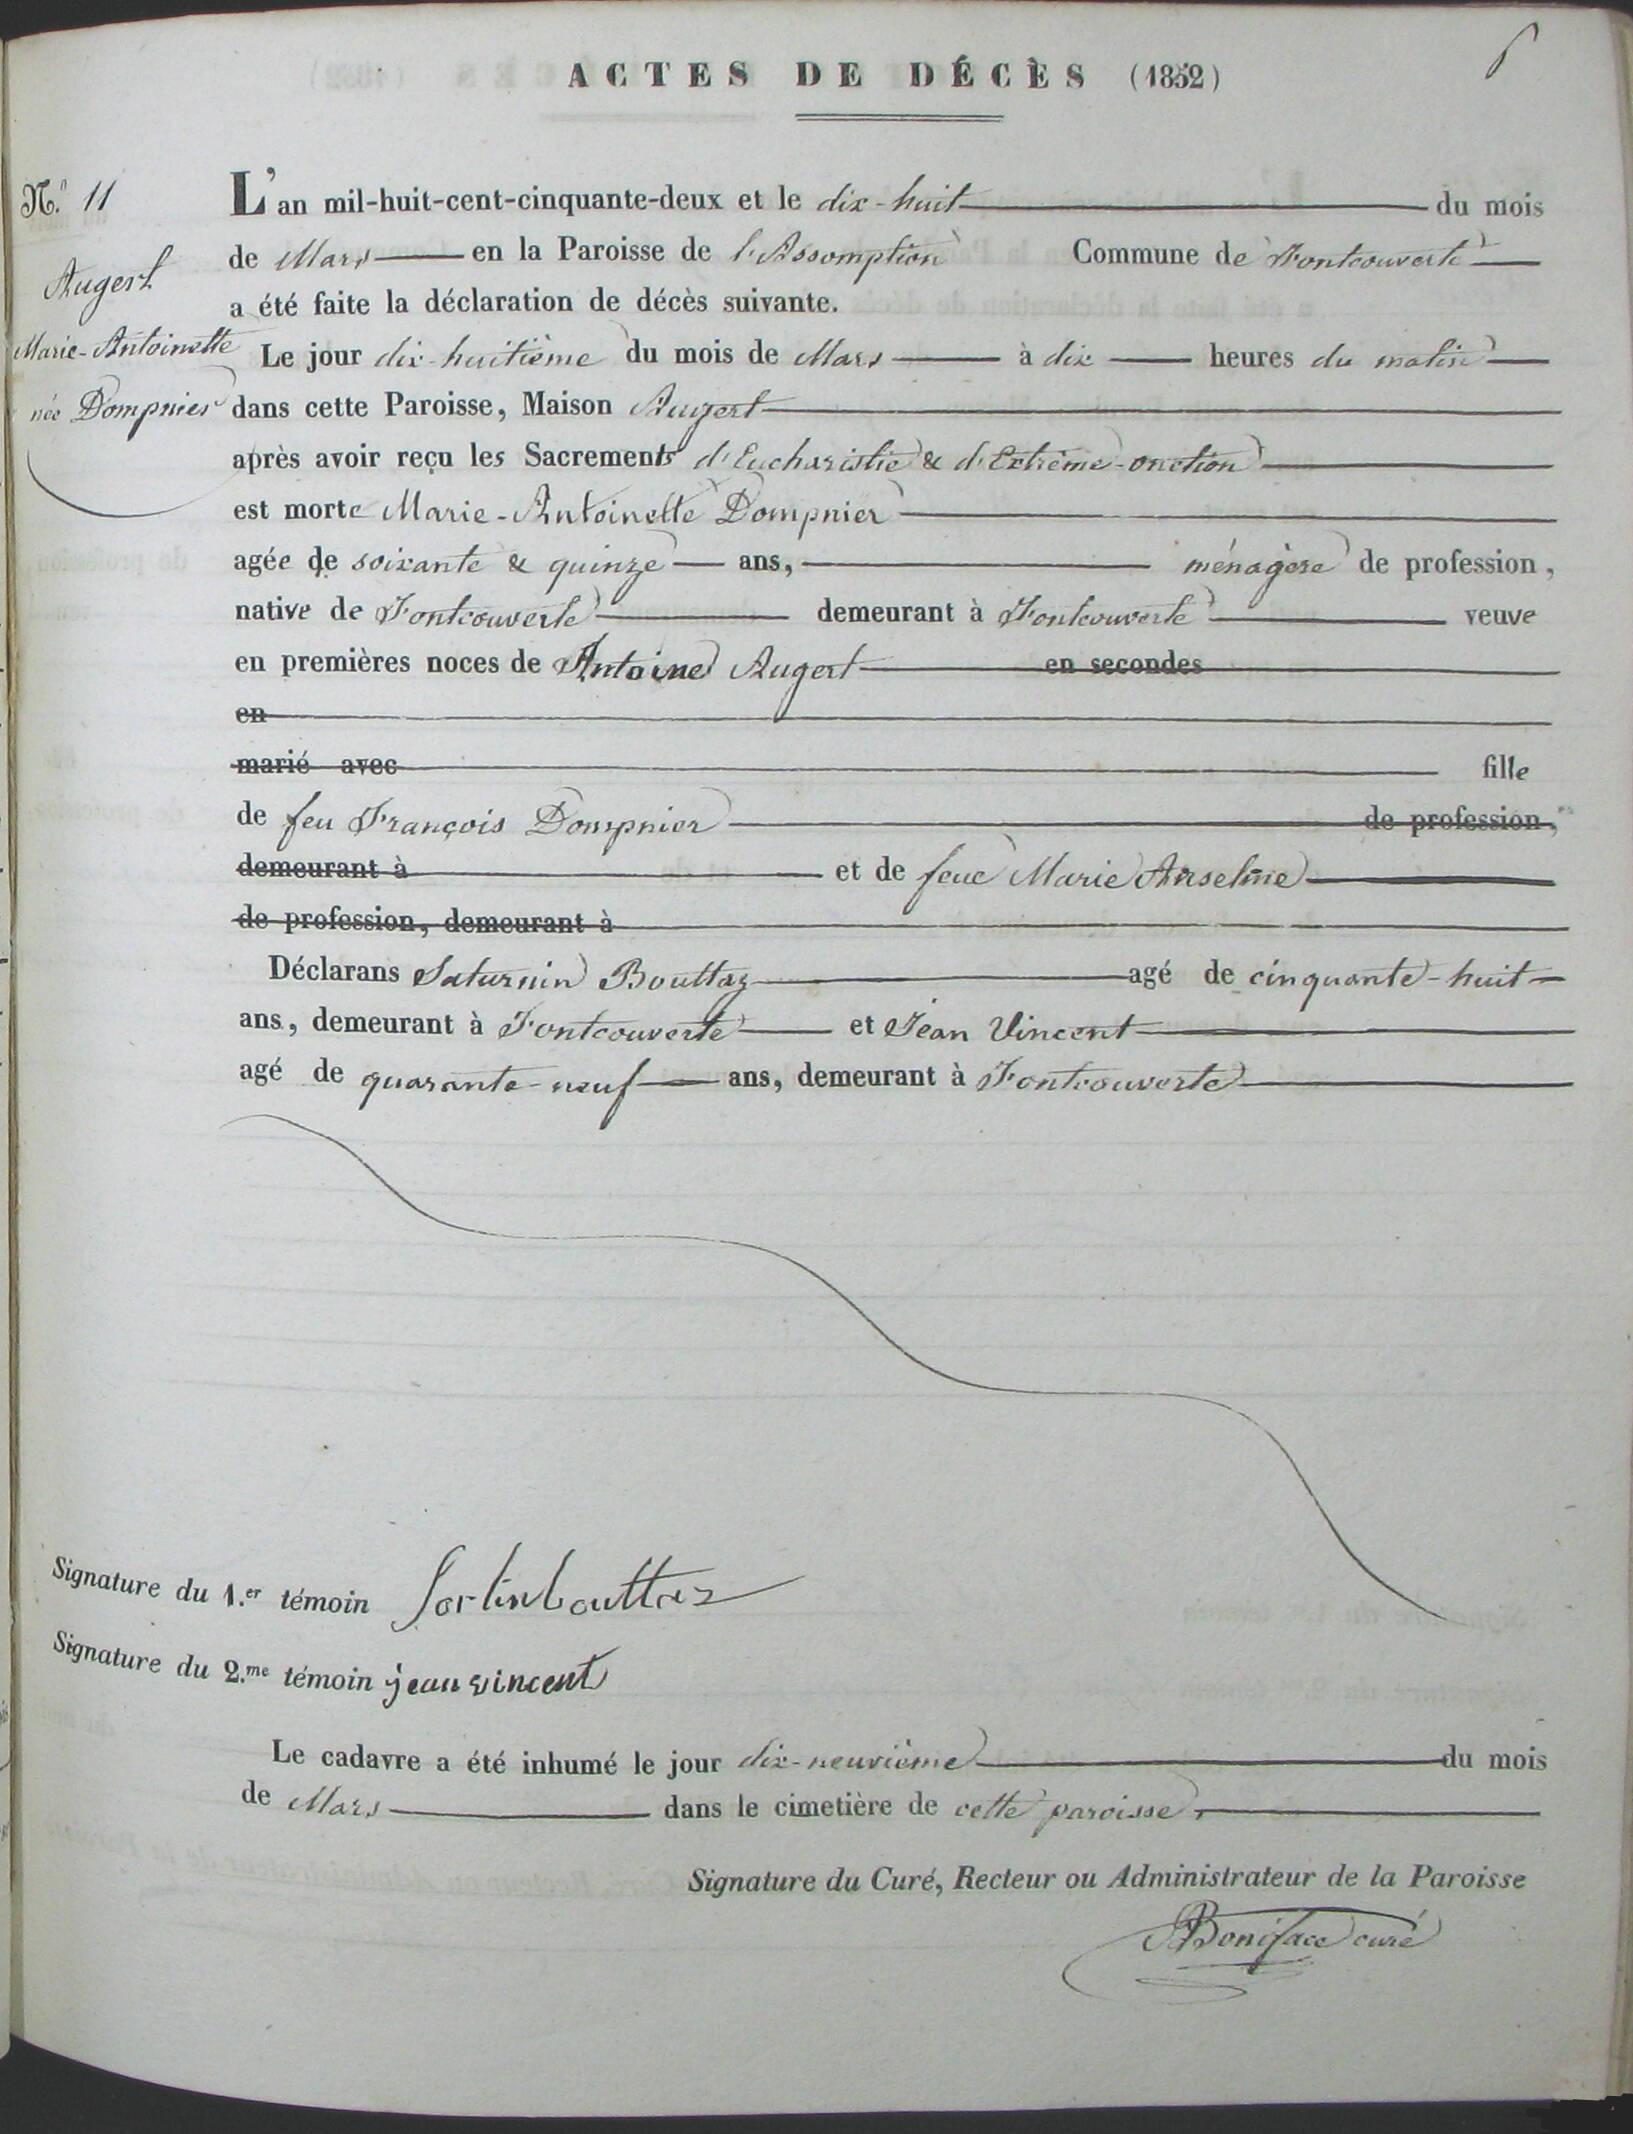 ACTES DE DÉCÈS (1852)
N.º 11
Augert
Marie-Antoinette
née Dompnier
L'an mil-huit-cent-cinquante-deux et le dix-huit du mois
de Mars en la Paroisse de l'Assomption Commune de Fontcouverte
a été faite la déclaration de décès suivante.
Le jour dix-huitième du mois de Mars à dix heures du matin
dans cette Paroisse, Maison Augert
après avoir reçu les Sacrements d'Eucharistie & d'Extrême-onction
est morte Marie-Antoinette Dompnier
agée de soixante & quinze ans, ménagère de profession,
native de Fontcouverte demeurant à Fontcouverte veuve
en premières noces de Antoine Augert en secondes
en
marié avec fille
de feu François Dompnier de profession,
demeurant à et de feue Marie Anselme
de profession, demeurant à
Déclarans Saturnin Bouttaz agé de cinquante-huit
ans, demeurant à Fontcouverte et Jean Vincent
agé de quarante-neuf ans, demeurant à Fontcouverte
Signature du 1.er témoin
Signature du 2.me témoin jean vincent
Le cadavre a été inhumé le jour dix-neuvième du mois
de Mars dans le cimetière de cette paroisse.
Signature du Curé, Recteur ou Administrateur de la Paroisse
Boniface curé